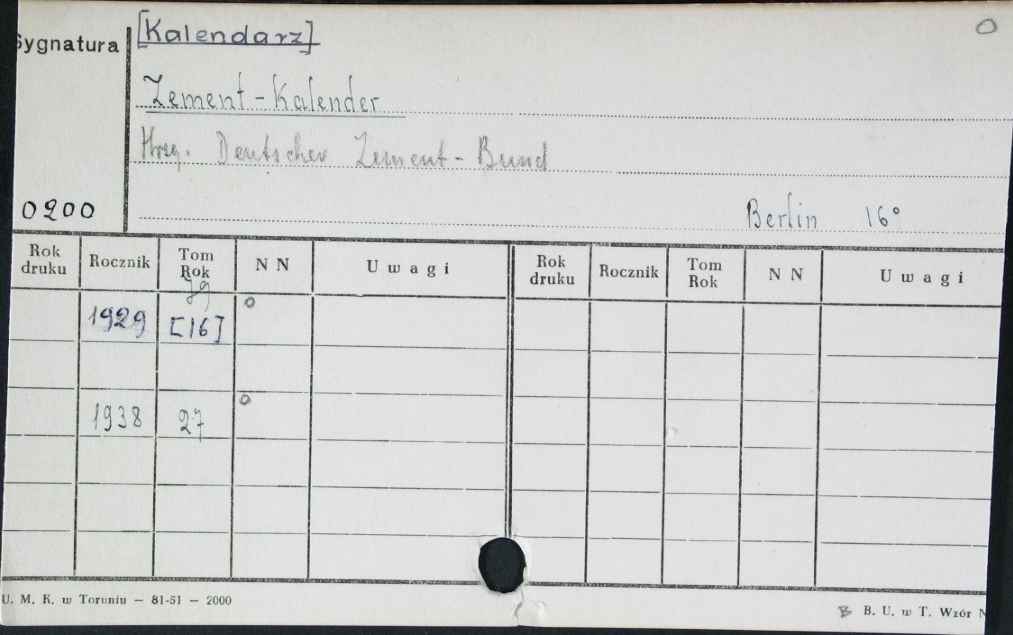 Sygnatura [Kalendarz] O
Zement-Kalender
Hrsg. Deutscher Zement-Bund
0200 Berlin 16°
Rok druku Rocznik Tom Rok N N Uwagi Rok druku Rocznik Tom Rok N N Uwagi
Jg
1929 [16] o
1938 27 o
U. M. K. w Toruniu — 81-51 — 2000
B. U. w T. Wzór N